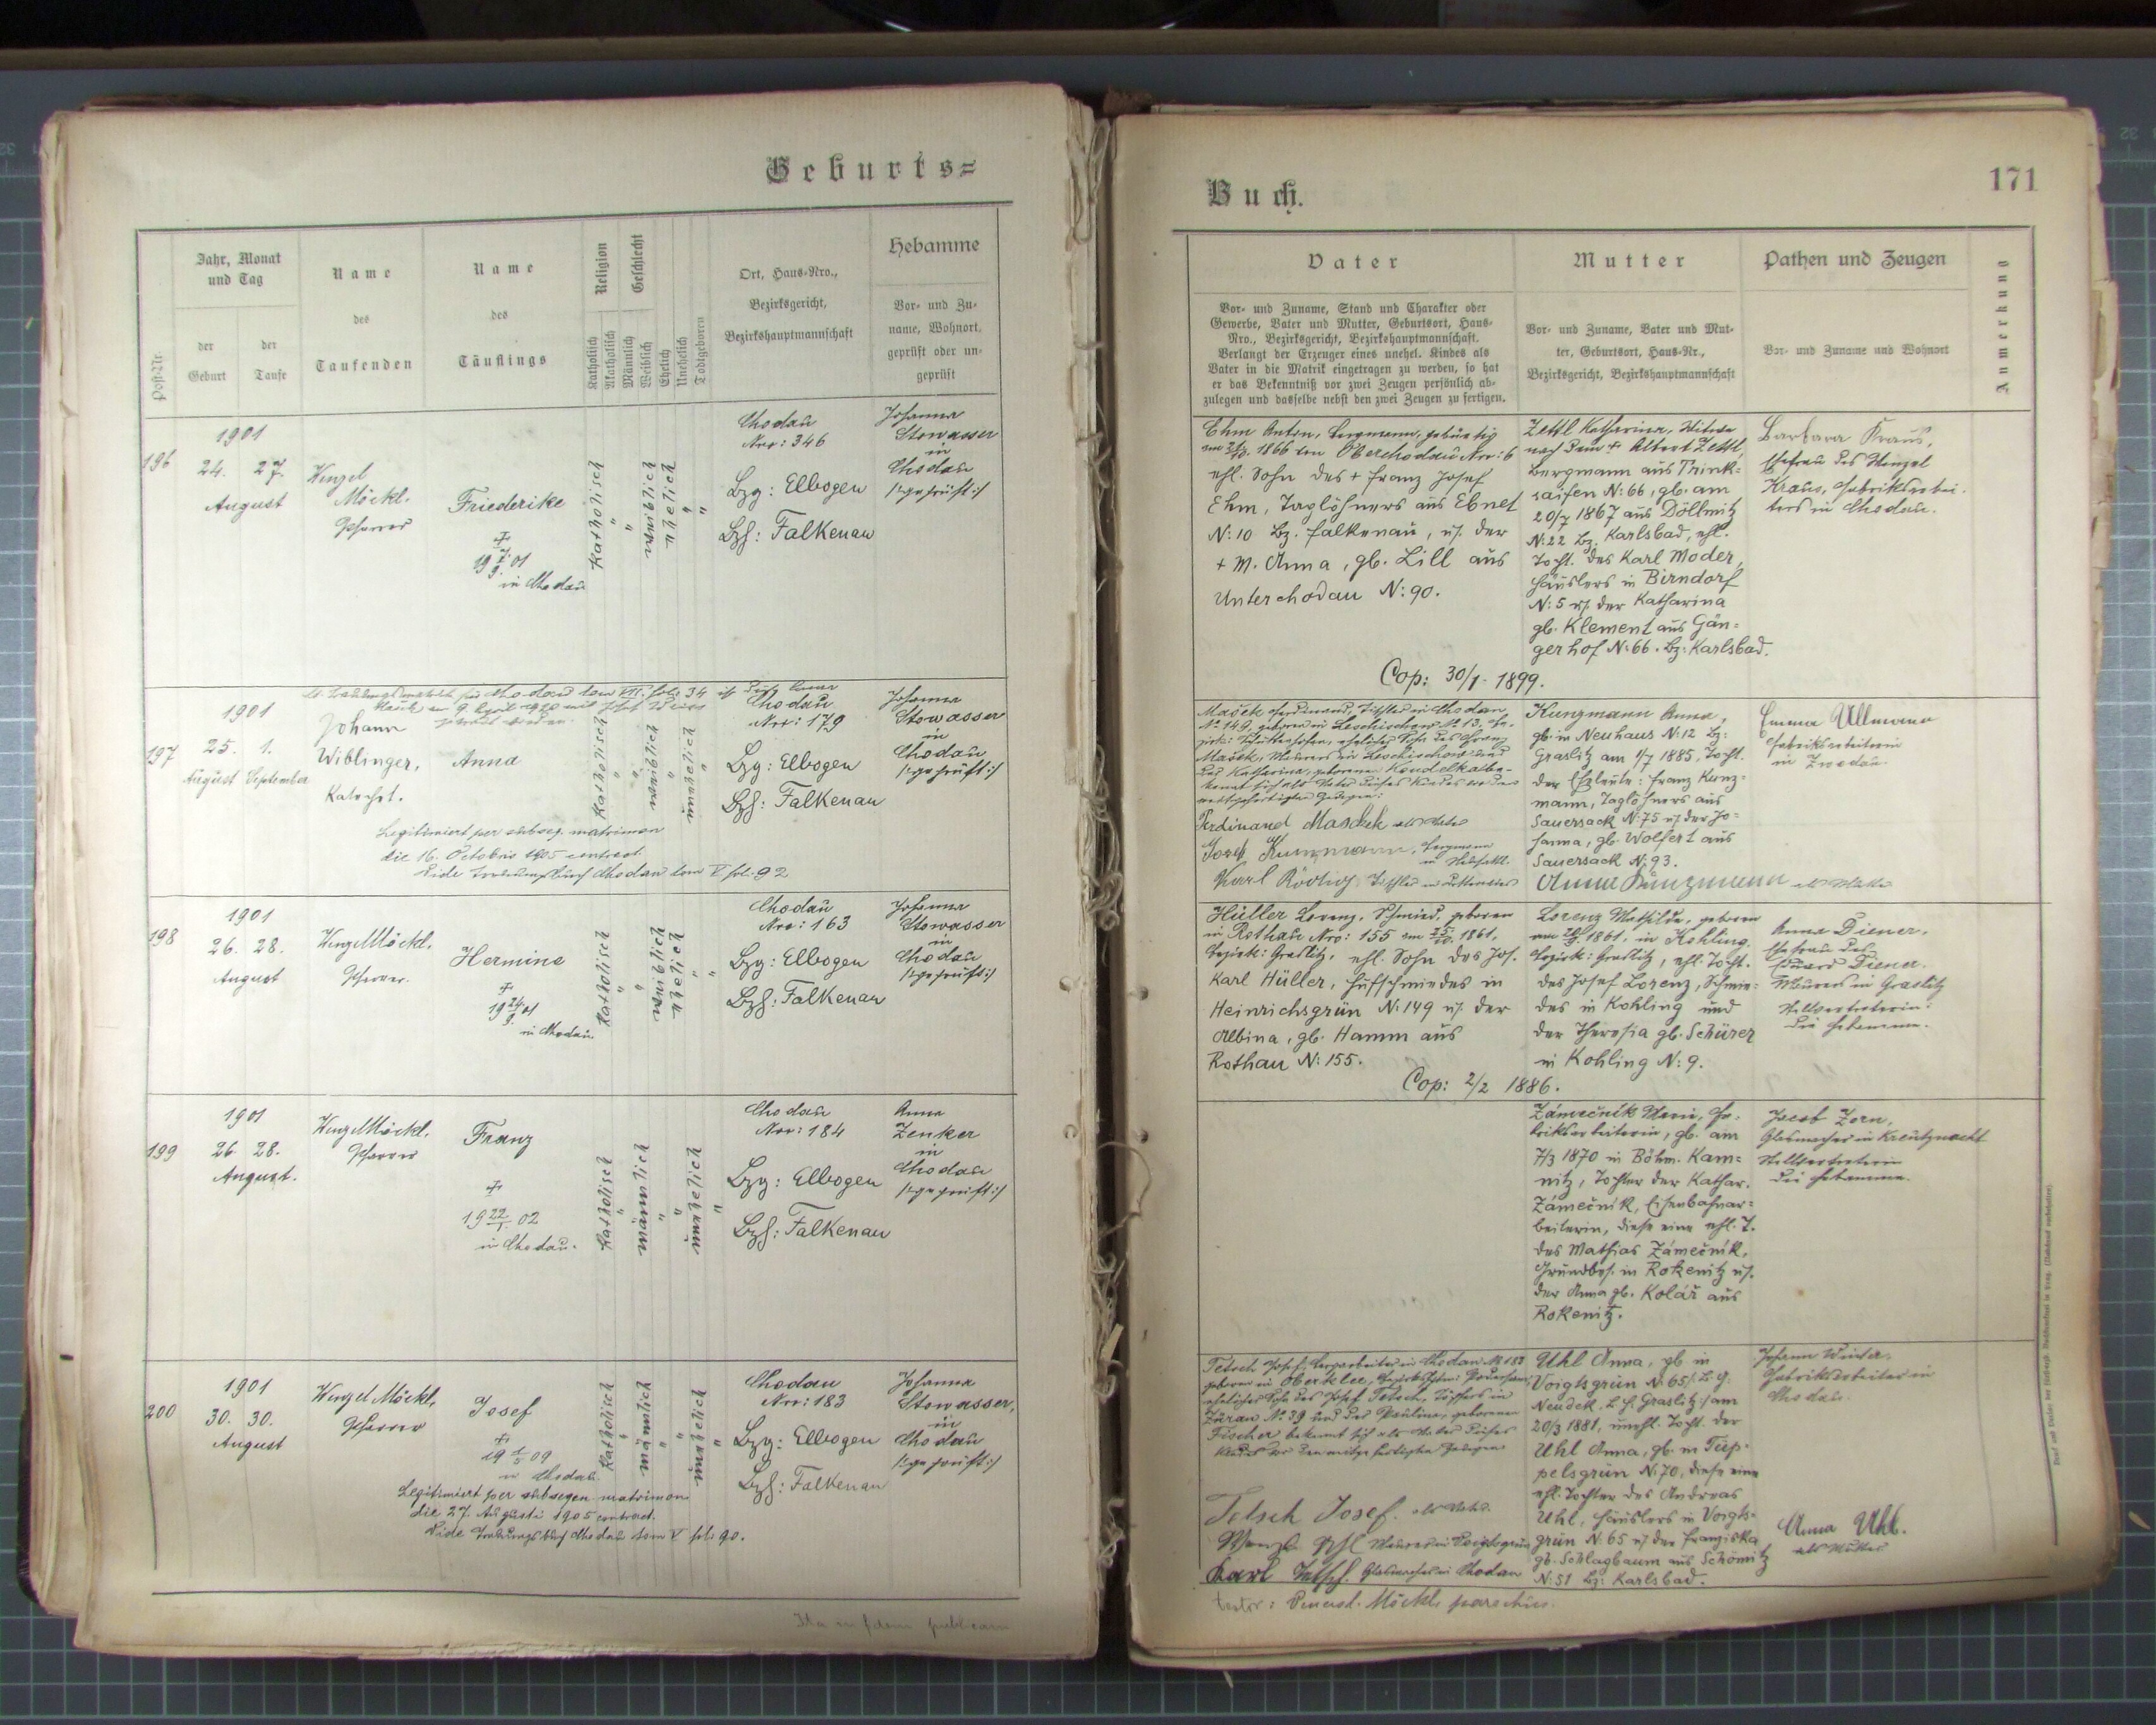 Geburts=
Jahr, Monat
und Tag
der
Geburt
der
Taufe
Post-Nr.
Name
des
Taufenden
Name
des
Täuflings
Religion
Katholisch
Akatholisch
Geschlecht
Männlich
Weiblich
Ehelich
Unehelich
Todtgeboren
Ort, Haus-Nro.,
Bezirksgericht,
Bezirkshauptmannschaft
Hebamme
Vor- und Zu-
name, Wohnort,
geprüft oder un-
geprüft
196
1901
24. 27.
August
Wenzel
Möckl.
Pfarrer
Friederike
†
19 7/9 01
in Chodau
Katholisch
weiblich
ehelich
Chodau
Nro: 346
Bzg: Elbogen
Bzh: Falkenau
Johanna
Stowasser
in
Chodau
/:geprüft:/
197
1901
25. 1.
August September
Johann
Wiblinger,
Katechet.
Anna
Katholisch
weiblich
unehelich
Chodau
Nro: 179
Bzg: Elbogen
Bzh: Falkenau
Johanna
Stowasser
in
Chodau
/:geprüft:/
Legitimiert per subseq. matrimon
die 16. Octobris 1905 contract.
Vide Trauungsbuch Chodau tom V fol. 92
198
1901
26. 28.
August
Wenzel Möckl.
Pfarrer.
Hermine
†
19 24/9 01
in Chodau.
Katholisch
weiblich
ehelich
Chodau
Nro: 163
Bzg: Elbogen
Bzh: Falkenau
Johanna
Stowasser
in
Chodau
/:geprüft:/
199
1901
26 28.
August.
Wenzel Möckl.
Pfarrer
Franz
†
19 22/1. 02
in Chodau.
Katholisch
männlich
unehelich
Chodau
Nro: 184
Bzg: Elbogen
Bzh: Falkenau
Anna
Zenker
in
Chodau
/:geprüft:/
200
1901
30. 30.
August
Wenzel Möckl,
Pfarrer
Josef
†
in Chodau.
Katholisch
männlich
unehelich
Chodau
Nro: 183
Bzg: Elbogen
Bzh: Falkenau
Johanna
Stowasser,
in
Chodau
/:geprüft:/
Legitimiert per subseqen. matrimon
die 27. Augusti 1905 contract.
Vide Trauungsbuch Chodau tom V fol. 90.
Buch.
171
Vater
Vor- und Zuname, Stand und Charakter oder
Gewerbe, Vater und Mutter, Geburtsort, Haus-
Nro., Bezirksgericht, Bezirkshauptmannschaft.
Verlangt der Erzeuger eines unehel. Kindes als
Vater in die Matrik eingetragen zu werden, so hat
er das Bekenntniß vor zwei Zeugen persönlich ab-
zulegen und dasselbe nebst den zwei Zeugen zu fertigen.
Mutter
Vor- und Zuname, Vater und Mut-
ter, Geburtsort, Haus-Nr.,
Bezirksgericht, Bezirkshauptmannschaft
Pathen und Zeugen
Vor- und Zuname und Wohnort
Anmerkung
Ehm Anton, Bergmann, gebürtig
1866 Oberchodau Nro: 6
ehl. Sohn des † Franz Josef
Ehm, Taglöhners aus Ebnet
N: 10 Bz. Falkenau, u. der
† M. Anna, gb. Lill aus
Unterchodau N: 90.
Zettl Katharina, Witwe
nach dem † Albert Zettl,
Bergmann aus Trink=
saifen N: 66, gb. am
20/7 1867 aus Döllnitz
N: 22 Bz. Karlsbad, ehl.
Tocht. des Karl Moder,
Häuslers in Birndorf
N: 5 u. der Katharina
gb. Klement aus Gän=
gerhof N: 66. Bz: Karlsbad.
Barbara Kraus,
Ehefrau des Wenzel
Kraus, Fabriksarbei-
ters in Chodau.
Cop: 30/1. 1899.
Mašek Ferdinand, Tischler in Chodau
Nº 149, geboren in Leschischow Nº 13, Be-
zirk: Schüttenhofen, ehelicher Sohn des Franz
Mašek, Maurers in Leschischow und
der Katharina, geborene Koudelka be-
kennt sich als Vater dieses Kindes vor den
mitgefertigten Zeugen:
Ferdinand Maschek als Vater
Josef Kunzmann, Bergmann
Karl Tischler in
Kunzmann Anna,
gb. in Neuhaus N: 12 Bz:
Graslitz am 1/7 1885, Tocht.
der Eheleute: Franz Kunz=
mann, Taglöhners aus
Sauersack N: 75 u. der Jo=
hanna, gb. Wolfert aus
Sauersack N: 93.
Anna Kunzmann als Mutter
Emma Ullmann
Fabriksarbeiterin
in Zwodau.
Hüller Lorenz, Schmied, geboren
in Rothau Nro: 155 am 1861,
Bezirk: Graslitz, ehl. Sohn des Jos.
Karl Hüller, Hufschmiedes in
Heinrichsgrün N: 149 u. der
Albina, gb. Hamm aus
Rothau N: 155.
Lorenz Mathilde, geboren
am 1861, in Kohling,
Bezirk: Graslitz, ehl. Tocht.
des Josef Lorenz, Schmie=
des in Kohling und
der Theresia gb. Schürer
in Kohling N: 9.
Anna Diener,
Ehefrau des
Eduard Diener.
Maurers in Graslitz
Stellvertreterin:
die Hebamme.
Cop: 2/2 1886.
Zámečník Marie, Fa-
briksarbeiterin, gb. am
7/3 1870 in Böhm. Kam=
nitz, Tochter der Kathar.
Zámečník, Eisenbahnar=
beiterin, diese eine ehl. T.
des Mathias Zámečník,
Grundbes. in Rokenitz u.
der Anna gb. Kolář aus
Rokenitz.
Jacob Zorn,
Glasmacher in Kreutznacht
Stellvertreterin
die Hebamme.
Tetsch Josef, Bergarbeiter in Chodau Nº 183
geboren in Oberklee, Bezirkshptm: Podersam,
ehelicher Sohn des Josef Tetsch, in
Zürau Nº 39 und der Pauline, geborenen
Fischer bekennt sich als Vater dieses
Kindes vor den mitgefertigten Zeugen
Tetsch Josef. als Vater.
Maurer in Voigtsgrün
Karl Tetsch. Glasmacher in Chodau
Uhl Anna, gb in
Voigtsgrün N. 65 /: B. G.
Neudek, B. H. Graslitz :/ am
20/3 1881, unehl. Tocht. der
Uhl Anna, gb. in Tüp-
pelsgrün N: 70, diese eine
ehl. Tochter des Andreas
Uhl, Häuslers in Voigts=
grün N: 65 u. der Franziska
gb. Schlagbaum aus Schömitz
N: 51 Bz: Karlsbad.
Johann Winter,
Fabriksarbeiter in
Chodau.
Anna Uhl.
als Mutter.
testor: Möckl, parochus.